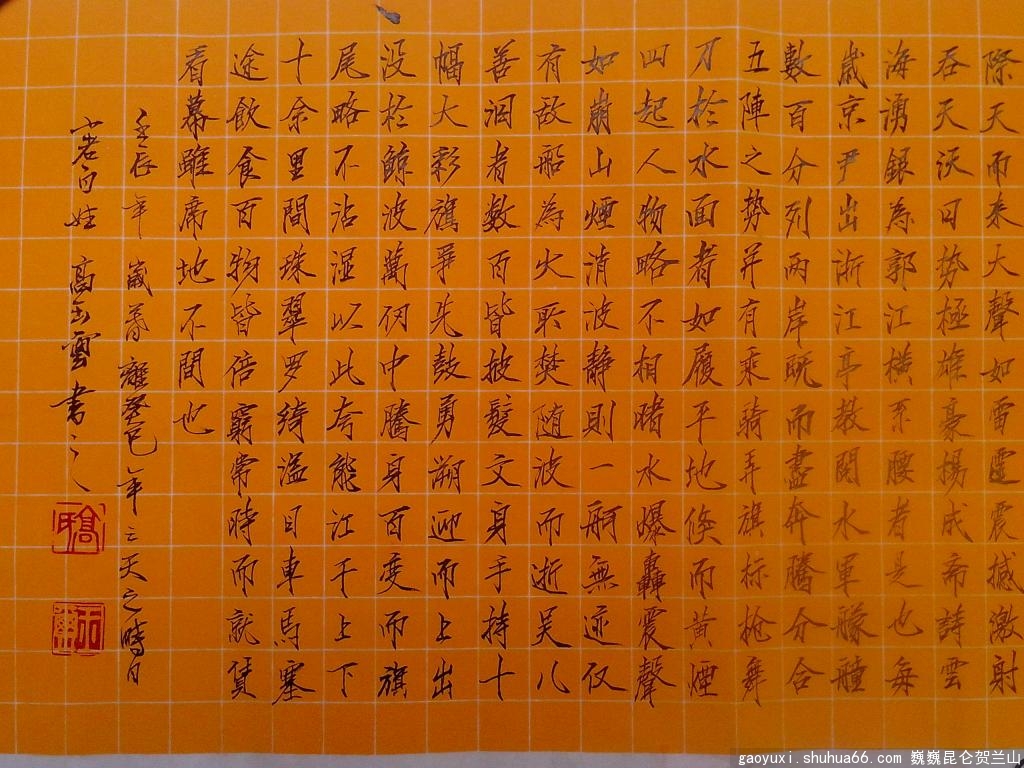 際天而来大聲如雷霆震撼激射
吞天沃日势極雄豪楊成斋詩雲
海湧銀為郭江横系腰者是也每
歲京尹出浙江亭教閱水軍艨艟
數百分列两岸既而盡奔騰分合
五陣之势并有乘骑弄旗标枪舞
刀於水面者如履平地倏而黄煙
四起人物略不相睹水爆轟震聲
如崩山煙消波静則一舸無迹仅
有敌船為火所焚随波而逝吴儿
善泅者数百皆披髮文身手持十
幅大彩旗争先鼓勇溯迎而上出
没於鲸波萬仞中騰身百变而旗
尾略不沾湿以此夸能江干上下
十余里間珠翠罗绮溢目車馬塞
途飲食百物皆倍窮常時而就賃
看幕雖席地不間也
壬辰年 歲暮離癸巳年三天之時日
小老百姓 高玉雲書之
gaoyuxi.shuhua66.com 巍巍昆仑贺兰山